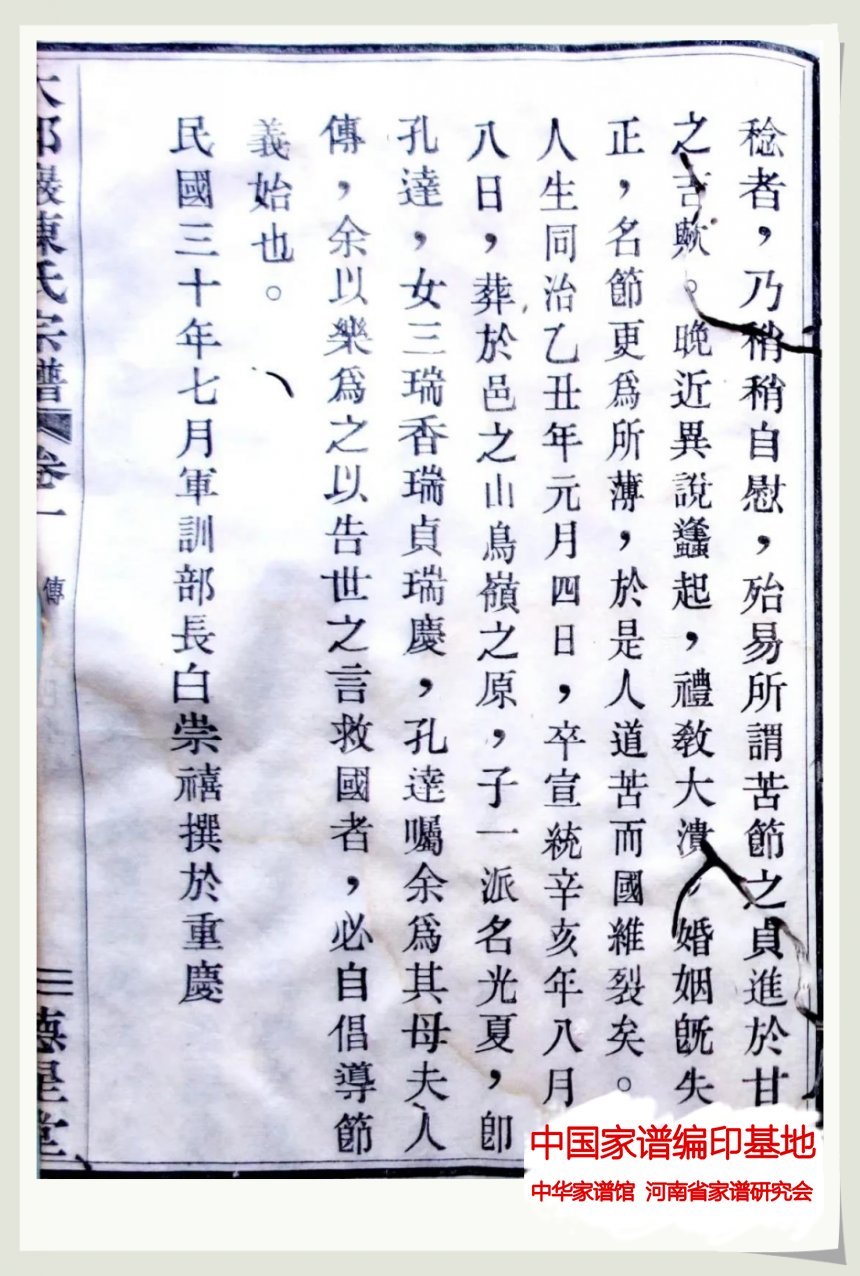 稔者，乃稍稍自慰，殆易所謂苦節之貞進於甘
之吉歟。晚近異說蠭起，禮敎大潰，婚姻旣失
正，名節更爲所薄，於是人道苦而國維裂矣。
人生同治乙丑年元月四日，卒宣統辛亥年八月
八日，葬於邑之山鳥嶺之原，子一派名光夏，卽
孔達，女三瑞香瑞貞瑞慶，孔達囑余爲其母夫人
傳，余以樂爲之以告世之言救國者，必自倡導節
義始也。
民國三十年七月軍訓部長白崇禧撰於重慶
陳氏宗譜 卷一 傳 三 德星堂
中国家谱编印基地
中华家谱馆 河南省家谱研究会